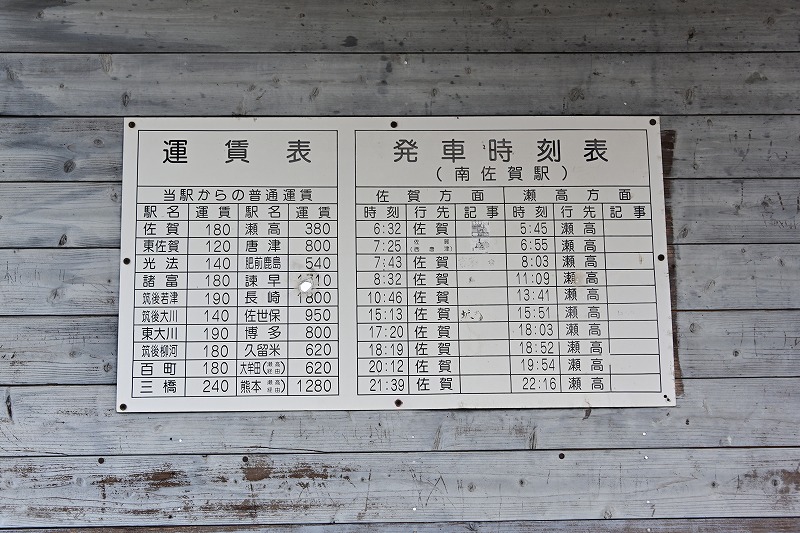 運賃表
当駅からの普通運賃
駅名 運賃 駅名 運賃
佐賀 180 瀬高 380
東佐賀 120 唐津 800
光法 140 肥前鹿島 540
諸富 180 諫早
筑後若津 190 長崎 1800
筑後大川 140 佐世保 950
東大川 190 博多 800
筑後柳河 180 久留米 620
百町 180 大牟田(瀬高経由) 620
三橋 240 熊本(瀬高経由) 1280
発車時刻表
(南佐賀駅)
佐賀方面 瀬高方面
時刻 行先 記事 時刻 行先 記事
6:32 佐賀 5:45 瀬高
7:25 6:55 瀬高
7:43 佐賀 8:03 瀬高
8:32 佐賀 11:09 瀬高
10:46 佐賀 13:41 瀬高
15:13 佐賀 15:51 瀬高
17:20 佐賀 18:03 瀬高
18:19 佐賀 18:52 瀬高
20:12 佐賀 19:54 瀬高
21:39 佐賀 22:16 瀬高